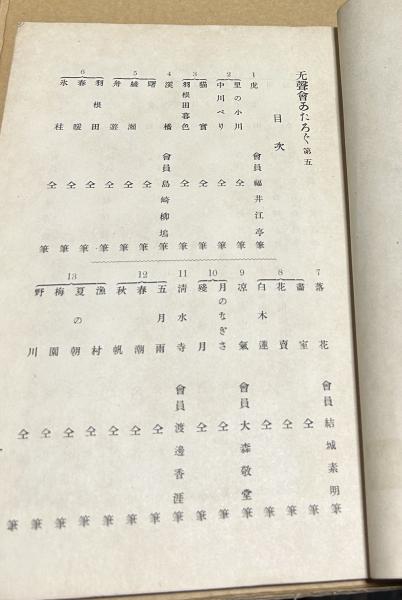 无聲會あたろぐ 第五
目次
1 虎 會員 福井江亭筆
2 里の小川 仝 筆
中川べり 仝 筆
3 猫實 仝 筆
羽根田暮色 仝 筆
4 溪橋 會員 島崎柳塢筆
5 曙 仝 筆
綾瀬 仝 筆
舟遊 仝 筆
6 羽根田 仝 筆
春暖 仝 筆
氷柱 仝 筆
7 落花 會員 結城素明筆
8 畫室 仝 筆
花賣 仝 筆
白木蓮 仝 筆
9 凉氣 會員 大森敬堂筆
10 月のなぎさ 仝 筆
殘月 仝 筆
11 淸水寺 會員 渡邊香涯筆
12 五月雨 仝 筆
春潮 仝 筆
秋帆 仝 筆
13 漁村 仝 筆
夏の朝 仝 筆
梅園 仝 筆
野川 仝 筆